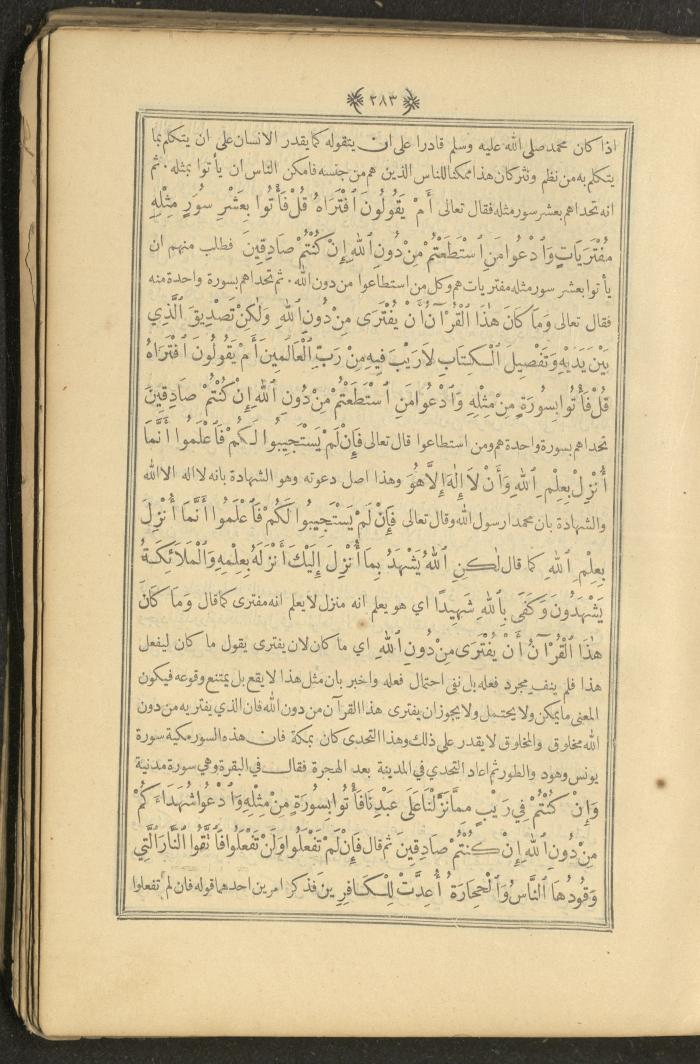 ٢٨٣
اذا كان محمد صلى الله عليه وسلم قادرا على ان يتقوله كما يقدر الانسان على ان يتكلم بما
يتكلم به من نظم ونثر كان هذا ممكنا للناس الذين هم من جنسه فامكن الناس ان يأتوا بمثله . ثم
انه تحداهم بعشر سور مثله فقال تعالى أَمْ يَقُولُونَ ٱفْتَرَاهُ قُلْ فَأْتُوا بِعَشْرِ سُوَرٍ مِثْلِهِ
مُفْتَرَيَاتٍ وَٱدْعُوا مَنِ ٱسْتَطَعْتُمْ مِنْ دُونِ ٱللهِ إِنْ كُنْتُمْ صَادِقِينَ فطلب منهم ان
يأتوا بعشر سور مثله مفتريات هم وكل من استطاعوا من دون الله . ثم تحداهم بسورة واحدة منه
فقال تعالى وَمَا كَانَ هٰذَا ٱلْقُرْآنُ أَنْ يُفْتَرَى مِنْ دُونِ ٱللهِ وَلٰكِنْ تَصْدِيقَ ٱلَّذِي
بَيْنَ يَدَيْهِ وَتَفْصِيلَ ٱلْكِتَابِ لَا رَيْبَ فِيهِ مِنْ رَبِّ ٱلْعَالَمِينَ أَمْ يَقُولُونَ ٱفْتَرَاهُ
قُلْ فَأْتُوا بِسُورَةٍ مِنْ مِثْلِهِ وَٱدْعُوا مَنِ ٱسْتَطَعْتُمْ مِنْ دُونِ ٱللهِ إِنْ كُنْتُمْ صَادِقِينَ
تحداهم بسورة واحدة هم ومن استطاعوا قال تعالى فَإِنْ لَمْ يَسْتَجِيبُوا لَكُمْ فَٱعْلَمُوا أَنَّمَا
أُنْزِلَ بِعِلْمِ ٱللهِ وَأَنْ لَا إِلٰهَ إِلَّا هُوَ وهذا اصل دعوته وهو الشهادة بانه لا اله الا الله
والشهادة بان محمدا رسول الله وقال تعالى فَإِنْ لَمْ يَسْتَجِيبُوا لَكُمْ فَٱعْلَمُوا أَنَّمَا أُنْزِلَ
بِعِلْمِ ٱللهِ كما قال لٰكِنِ ٱللهُ يَشْهَدُ بِمَا أُنْزِلَ إِلَيْكَ أَنْزَلَهُ بِعِلْمِهِ وَٱلْمَلَائِكَةُ
يَشْهَدُونَ وَكَفَى بِٱللهِ شَهِيدًا اي هو يعلم انه منزل لا يعلم انه مفترى كما قال وَمَا كَانَ
هٰذَا ٱلْقُرْآنُ أَنْ يُفْتَرَى مِنْ دُونِ ٱللهِ اي ما كان لان يفترى يقول ما كان ليفعل
هذا فلم ينف مجرد فعله بل نفى احتمال فعله واخبر بان مثل هذا لا يقع بل يمتنع وقوعه فيكون
المعنى ما يمكن ولا يحتمل ولا يجوز ان يفترى هذا القرآن من دون الله فان الذي يفتريه من دون
الله مخلوق والمخلوق لا يقدر على ذلك وهذا التحدى كان بمكة فان هذه السور مكية سورة
يونس وهود والطور ثم اعاد التحدي في المدينة بعد الهجرة فقال في البقرة وهي سورة مدنية
وَإِنْ كُنْتُمْ فِي رَيْبٍ مِمَّا نَزَّلْنَا عَلَى عَبْدِنَا فَأْتُوا بِسُورَةٍ مِنْ مِثْلِهِ وَٱدْعُوا شُهَدَاءَكُمْ
مِنْ دُونِ ٱللهِ إِنْ كُنْتُمْ صَادِقِينَ ثم قال فَإِنْ لَمْ تَفْعَلُوا وَلَنْ تَفْعَلُوا فَٱتَّقُوا ٱلنَّارَ ٱلَّتِي
وَقُودُهَا ٱلنَّاسُ وَٱلْحِجَارَةُ أُعِدَّتْ لِلْكَافِرِينَ فذكر امرين احدهما قوله فان لم تفعلوا